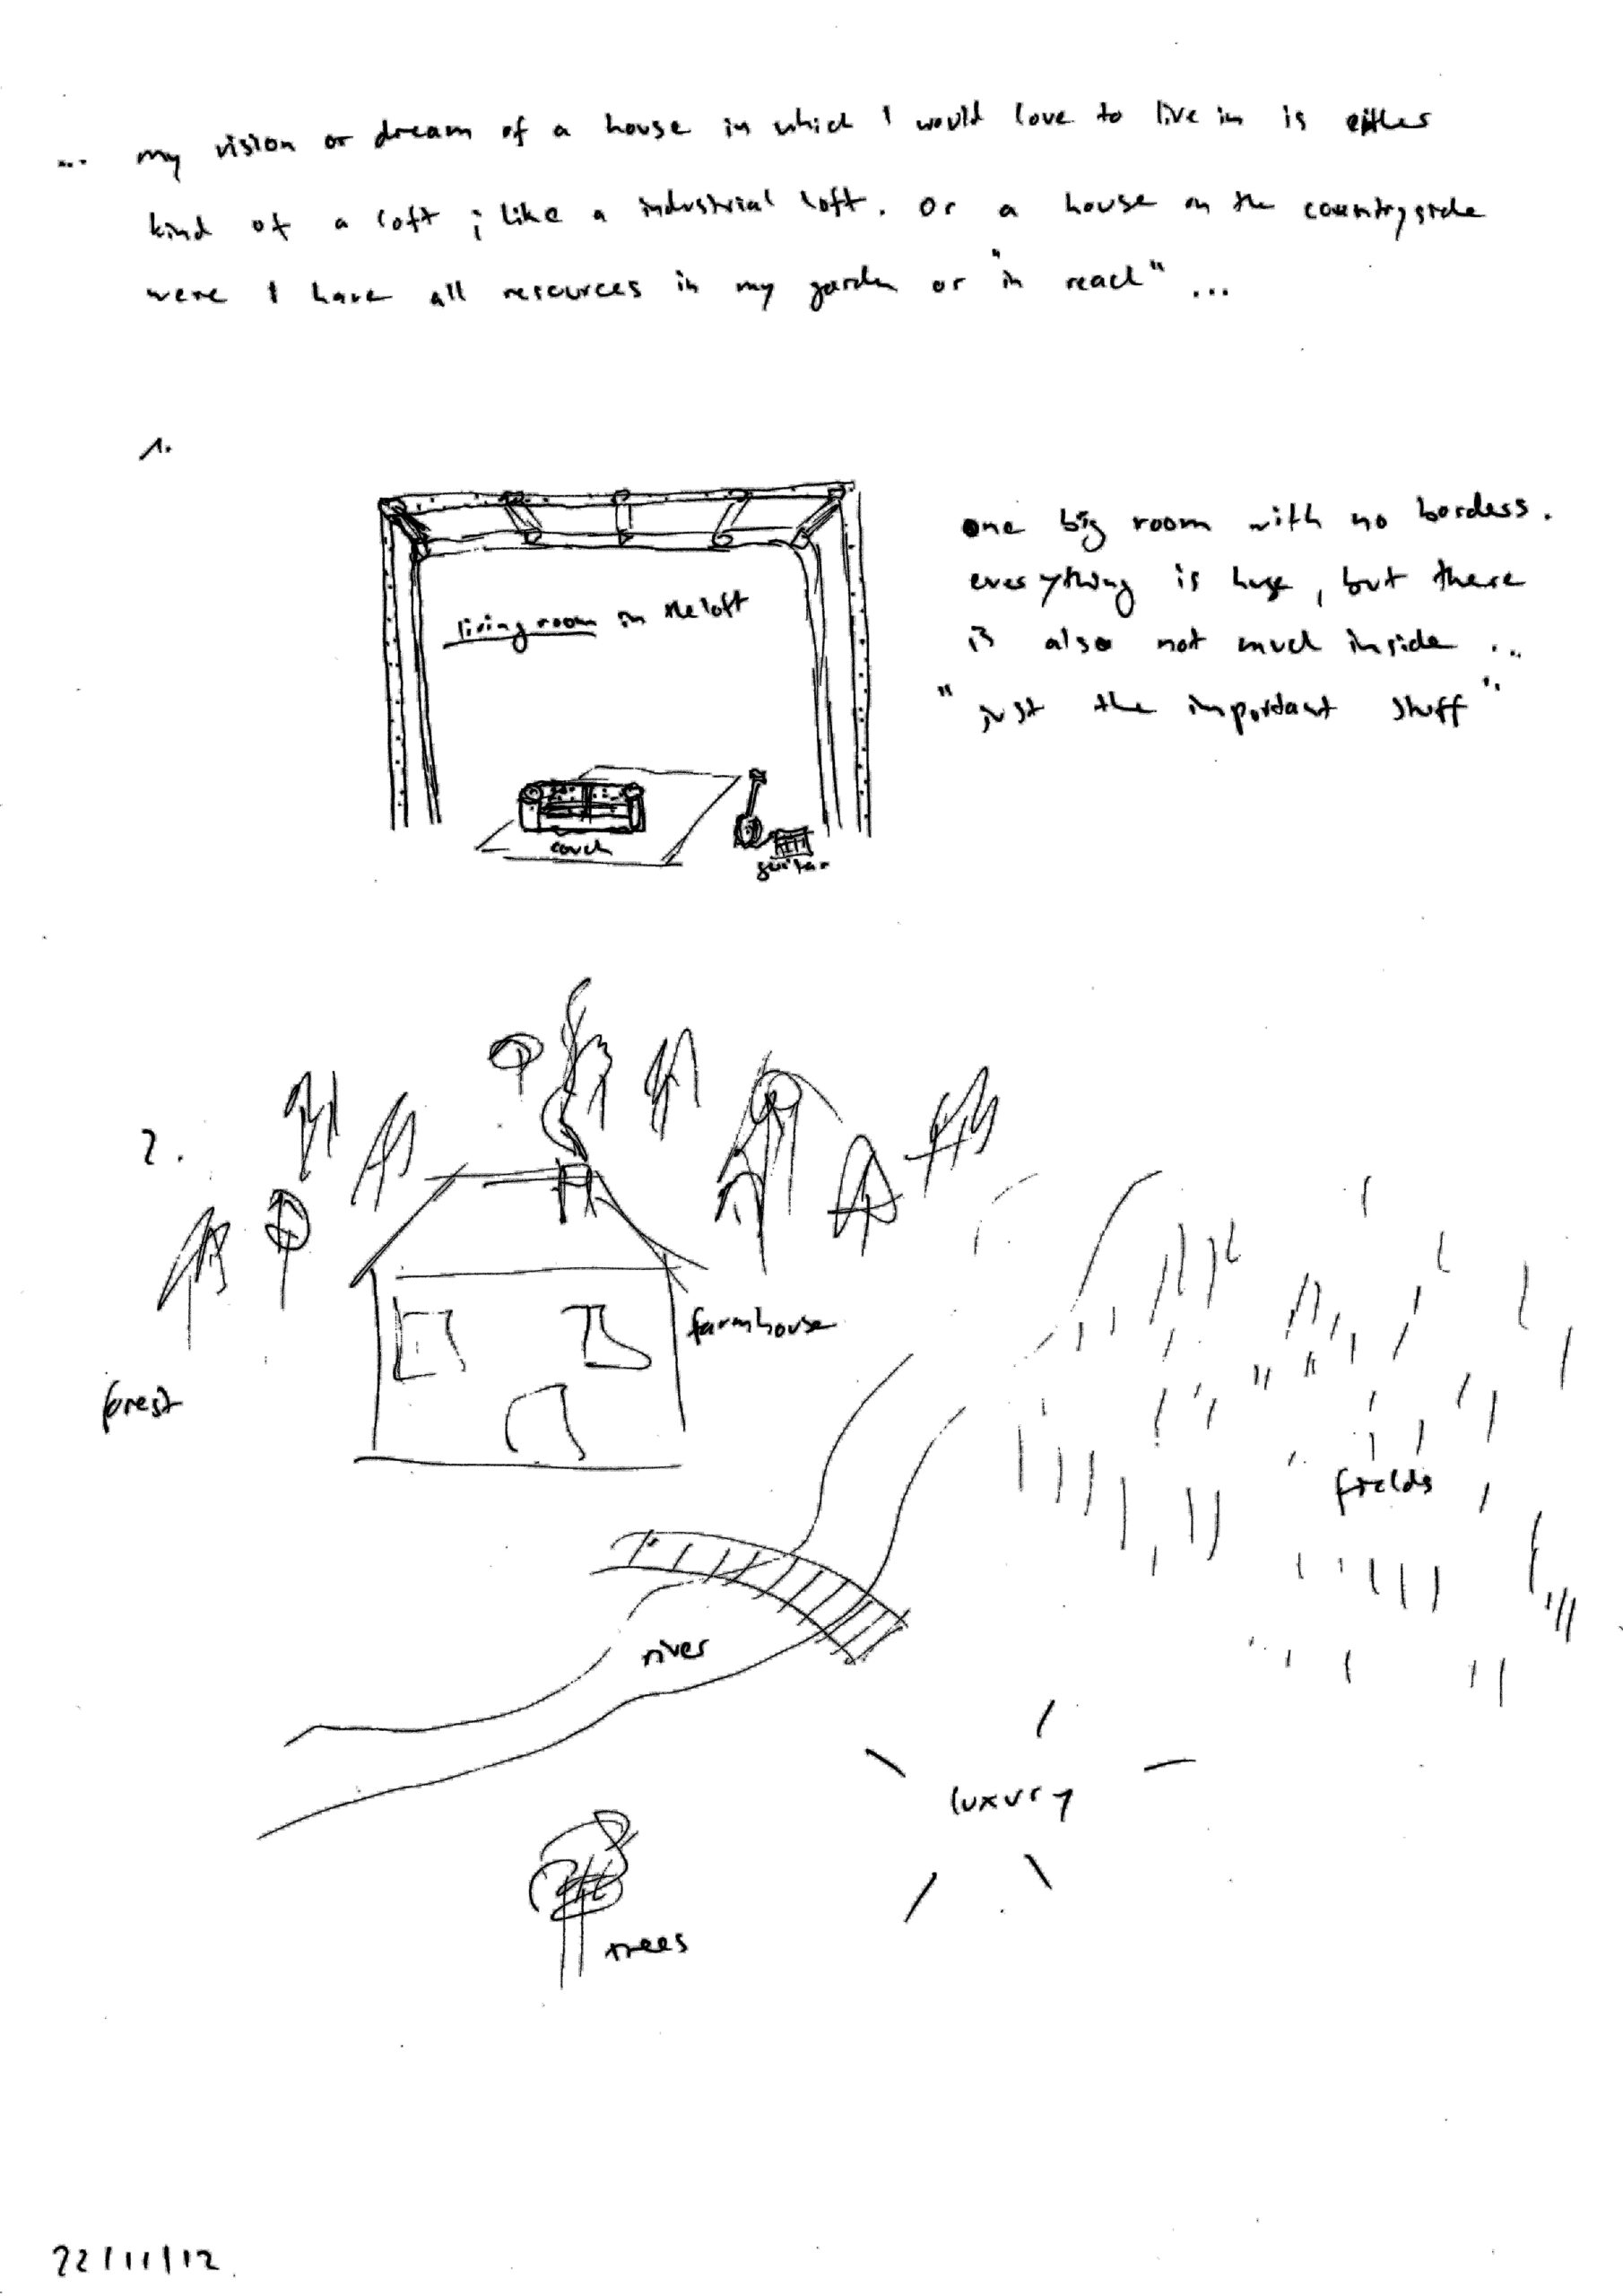 ... my vision or dream of a house in which I would love to live in is either
kind of a loft ; like a industrial loft. or a house on the countryside
were I have all resources in my garden or "in reach" ...
1.
one big room with no borders.
everything is huge, but there
is also not much inside ...
"just the important stuff".
living room in the loft
couch
guitar
2.
farmhouse
forest
fields
river
luxury
trees
22/11/12